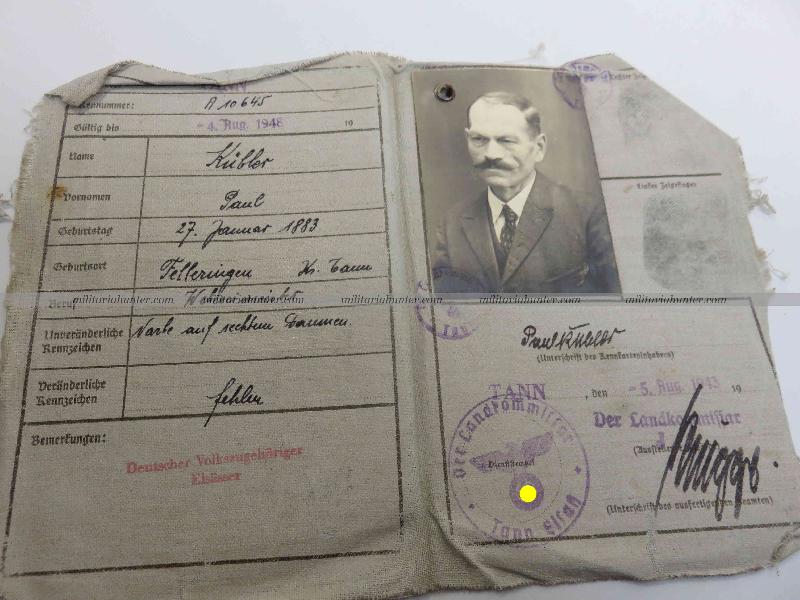 TANN
Kennummer: A 10645
Gültig bis -4. Aug. 1948 19
Name Kübler
Vornamen Paul
Geburtstag 27. Januar 1883
Geburtsort Felleringen Kr. Tann
Beruf
militariahunter.com militariahunter.com militariahunter.com militariahunter.com militariahunter.com militariahunter.com
Unveränderliche Kennzeichen Narbe auf rechtem Daumen.
Veränderliche Kennzeichen fehlen
Bemerkungen:
Deutscher Volkszugehöriger
Elsässer
Rechter
Linker Zeigefinger
Paul Kübler
(Unterschrift des Kennkarteninhabers)
TANN, den -5. Aug. 1943 19
Der Landkommissar
Der Landkommissar
Dienststempel
Tann Elsaß
(Unterschrift des ausfertigenden Beamten)